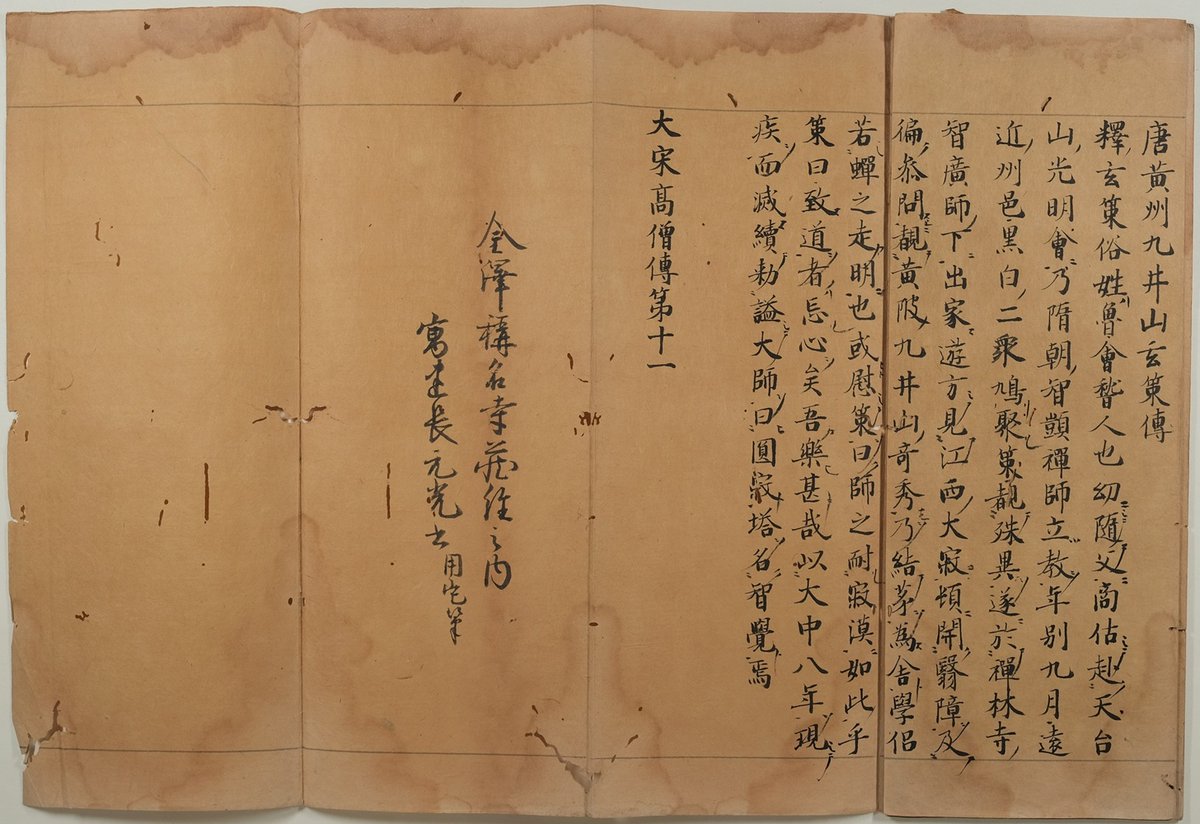 唐黄州九井山玄策傳
釋玄策俗姓魯會稽人也幼随父商估赴天台
山光明會乃隋朝智顗禅師立教年別九月遠
近州邑黒白二衆鳩聚策覩殊異遂於禅林寺
智廣師下出家遊方見江西大寂頓開翳障及
徧叅問覩黄陂九井山奇秀乃結茅為舎學侣
若蟬之走明也或慰策曰師之耐寂漠如此乎
策曰致道者忘心矣吾樂甚哉以大中八年現
疾而滅續勅謚大師曰圓寂塔名智覺焉
大宋髙僧傳第十一
金澤稱名寺藏経之内
寫建長元光士